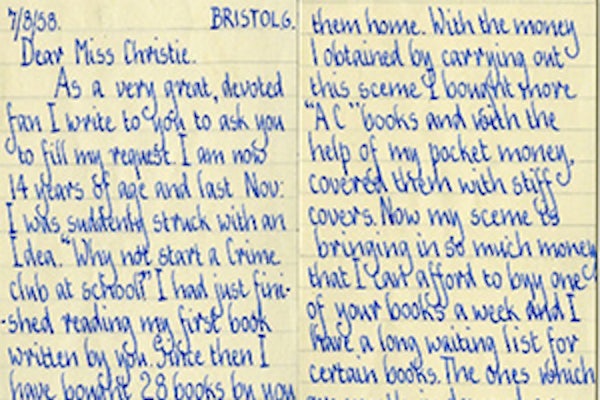 7/8/58. BRISTOL6.
Dear Miss Christie.
As a very great, devoted
fan I write to you to ask you
to fill my request. I am now
14 years of age and last Nov:
I was suddenly struck with an
Idea. "Why not start a Crime
club at school?" I had just fini-
-shed reading my first book
written by you. Since then I
have bought 28 books by you
them home. With the money
I obtained by carrying out
this sceme I bought more
"A C" books and with the
help of my pocket money,
covered them with stiff
covers. Now my sceme is
bringing in so much money
that I can afford to buy one
of your books a week and I
have a long waiting list for
certain books. The ones which